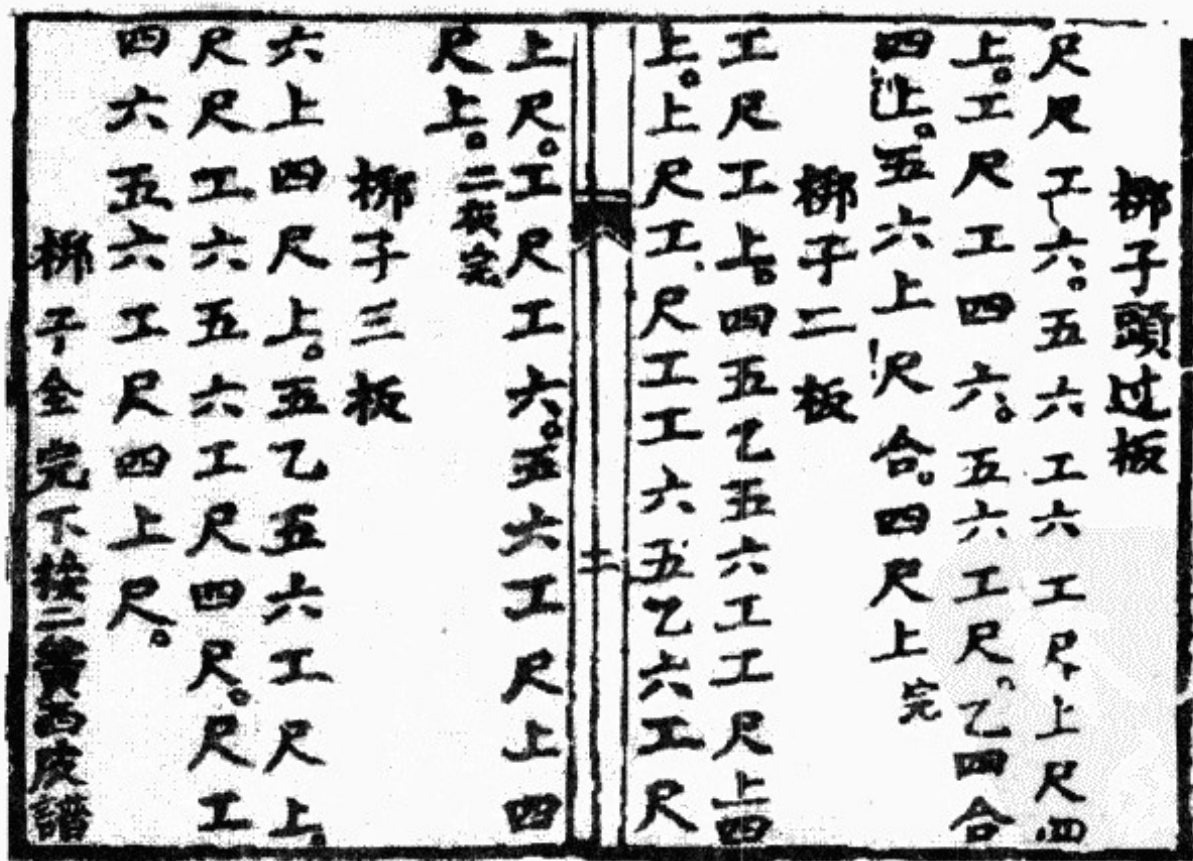 梆子頭过板
尺尺工六。五六工六工尺上尺四
上。工尺工四六。五六工尺。乙四合
四上。五六上尺合。四尺上完
梆子二板
工尺工上。四五乙五六工工尺上四
上。上尺工尺工工六五乙六工尺
上尺。工尺工六。五六工尺上四
尺上。二板完
梆子三板
六上四尺上。五乙五六工尺上。
尺尺工六五六工尺四尺。尺工
四六五六工尺四上尺。
梆子全完下接二黃西皮譜